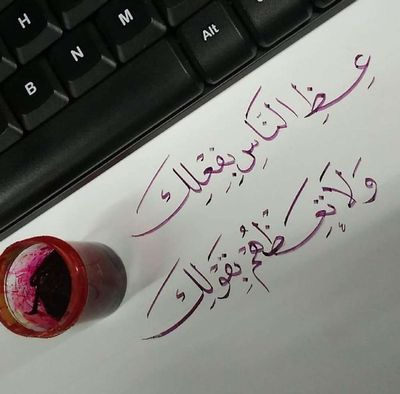 H
N
M
B
Alt
عِظِ النَّاسِ بِفِعْلِكَ
وَلَا تَعِظْهُمْ بِقَوْلِكَ